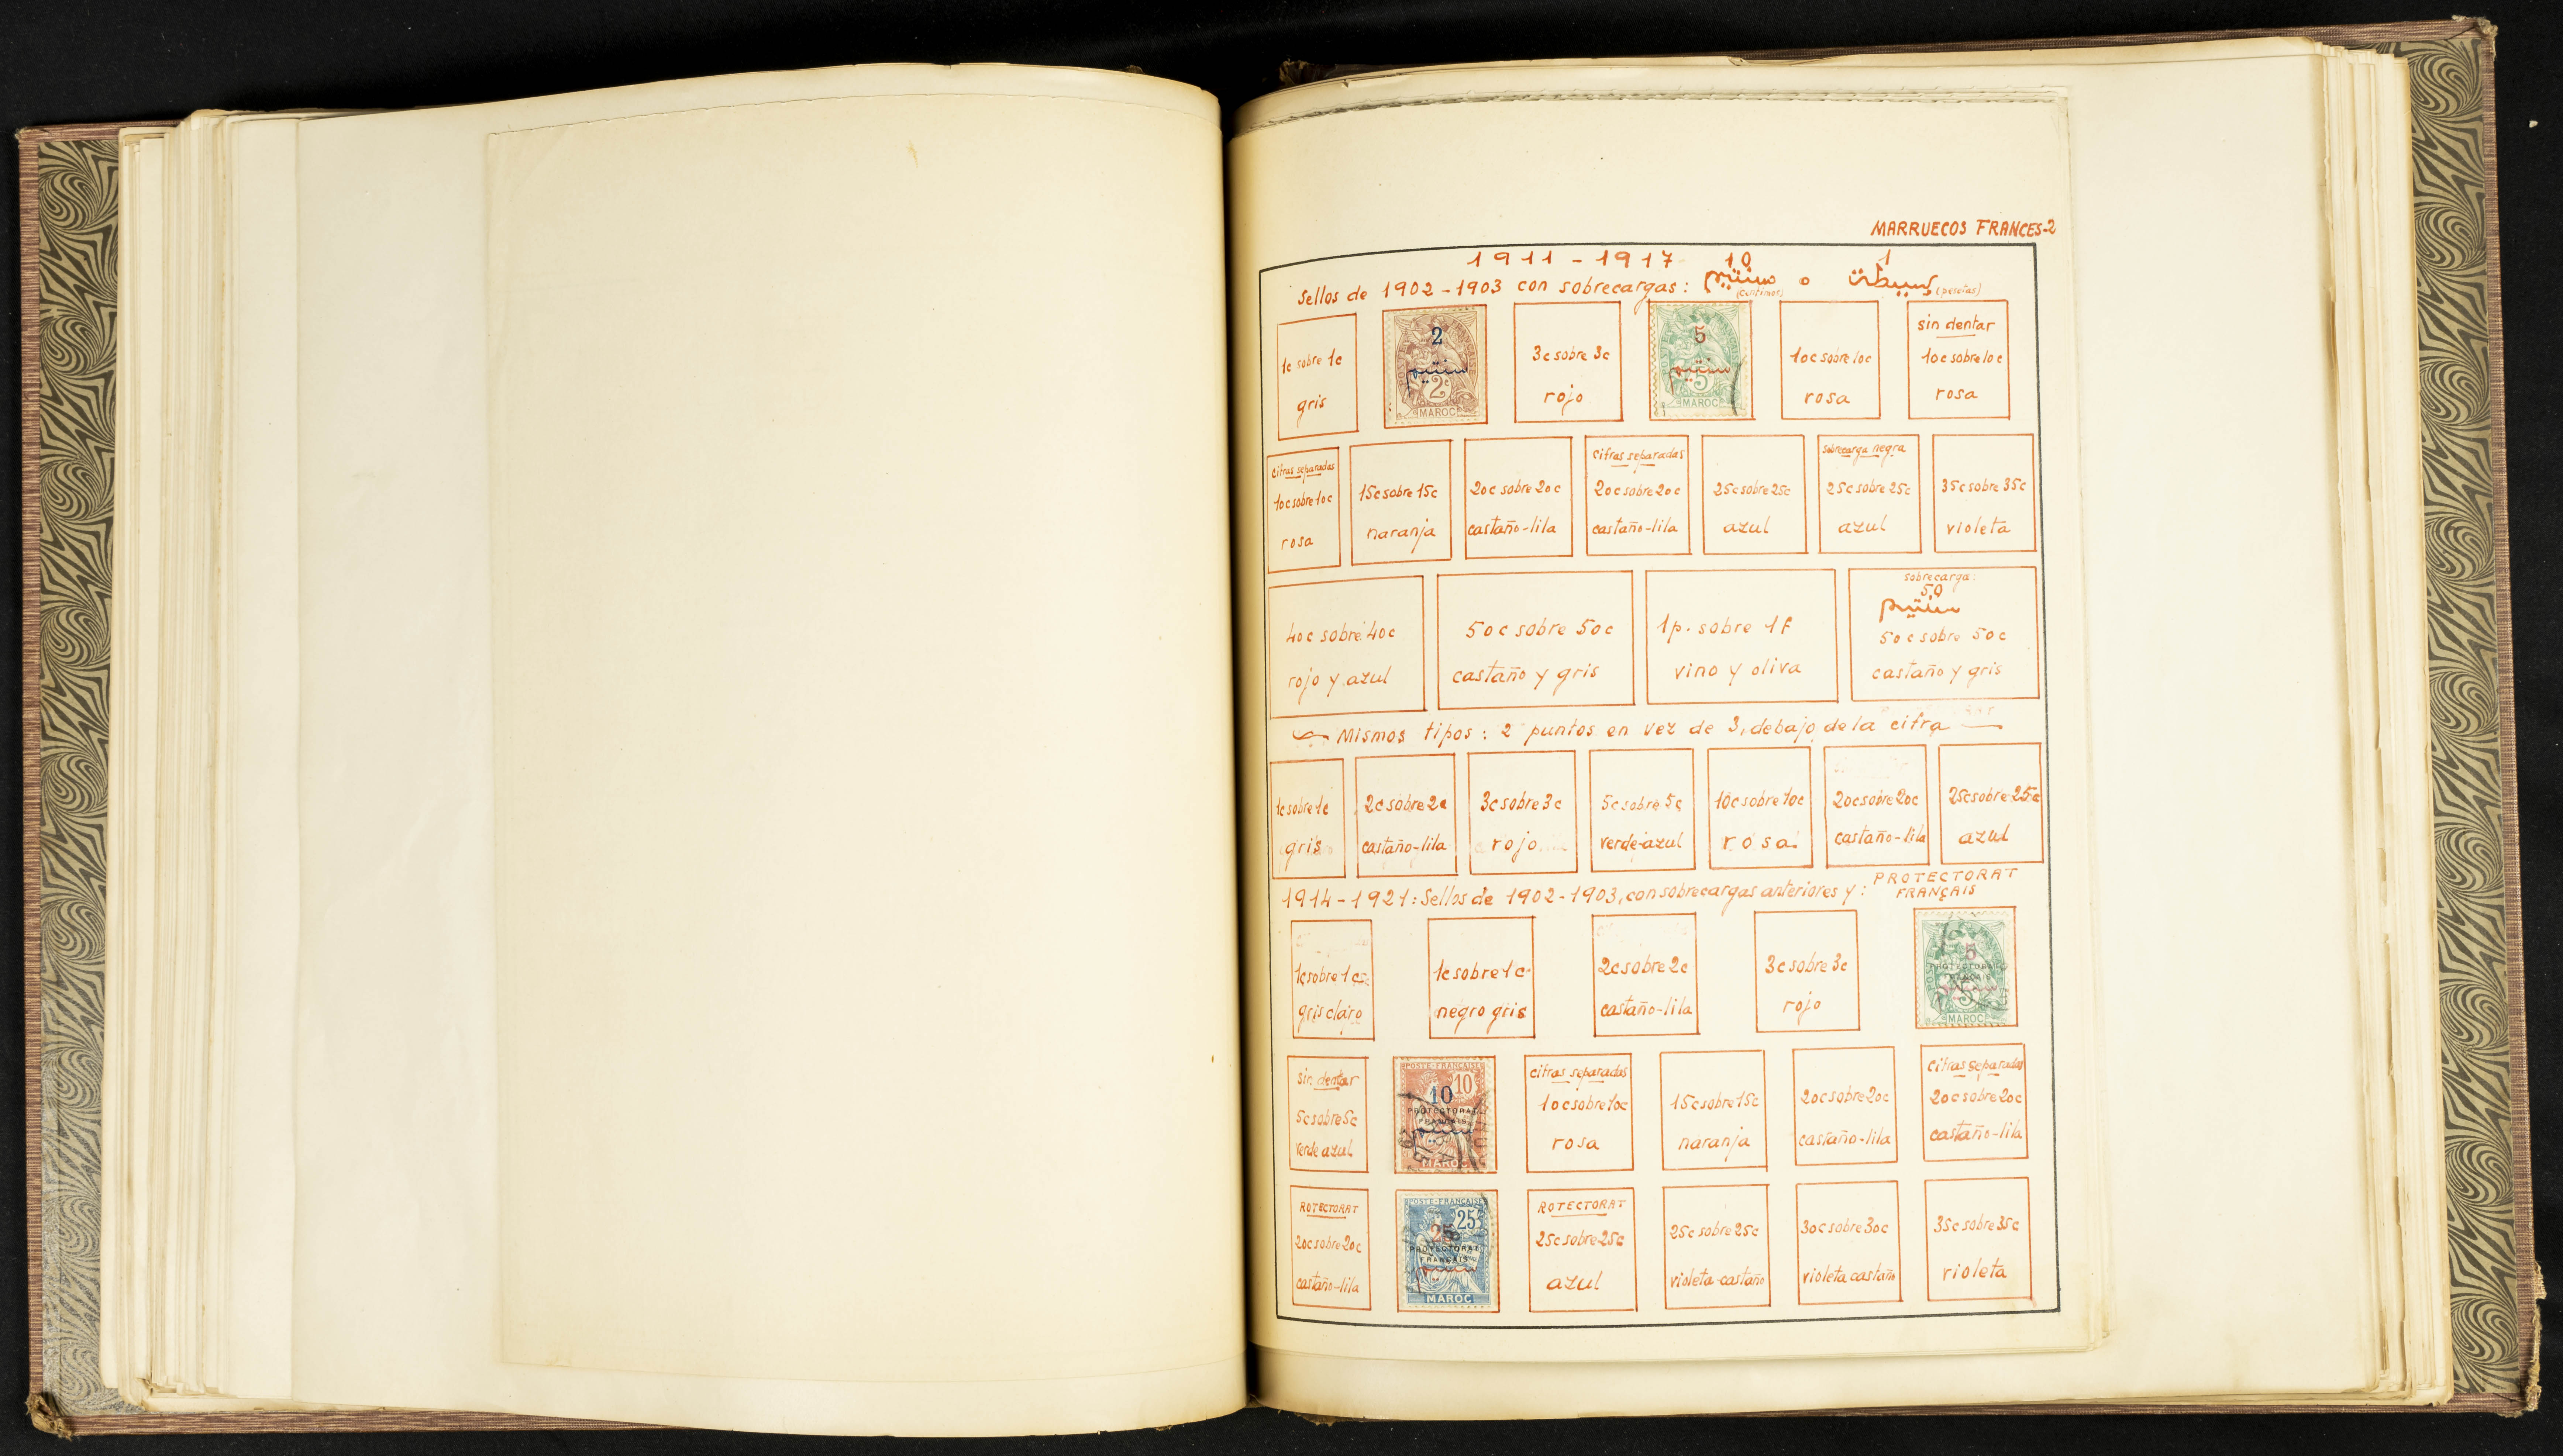 MARRUECOS FRANCES-2
1911 - 1917 10 1
Sellos de 1902-1903 con sobrecargas: سنتيم (centimos) o بسيطة (pesetas)
1c sobre 1c
gris
2
سنتيم
2c
MAROC
3c sobre 3c
rojo
5
سنتيم
5
MAROC
10c sobre 10c
rosa
sin dentar
10c sobre 10c
rosa
cifras separadas
10c sobre 10c
rosa
15c sobre 15c
naranja
20c sobre 20c
castaño-lila
cifras separadas
20c sobre 20c
castaño-lila
25c sobre 25c
azul
sobrecarga negra
25c sobre 25c
azul
35c sobre 35c
violeta
40c sobre 40c
rojo y azul
50c sobre 50c
castaño y gris
1p. sobre 1f
vino y oliva
sobrecarga:
50
سنتيم
50c sobre 50c
castaño y gris
Mismos tipos: 2 puntos en vez de 3, debajo de la cifra
1c sobre 1c
gris
2c sobre 2c
castaño-lila
3c sobre 3c
rojo
5c sobre 5c
verde-azul
10c sobre 10c
rosa
20c sobre 20c
castaño-lila
25c sobre 25c
azul
1914-1921: Sellos de 1902-1903, con sobrecargas anteriores y: PROTECTORAT
FRANÇAIS
1c sobre 1c
gris claro
1c sobre 1c
negro gris
2c sobre 2c
castaño-lila
3c sobre 3c
rojo
5
PROTECTORAT
FRANÇAIS
MAROC
sin dentar
5c sobre 5c
verde azul
POSTE FRANÇAISE
10
10
PROTECTORAT
FRANÇAIS
MAROC
cifras separadas
10c sobre 10c
rosa
15c sobre 15c
naranja
20c sobre 20c
castaño-lila
cifras separadas
20c sobre 20c
castaño-lila
ROTECTORAT
20c sobre 20c
castaño-lila
POSTE FRANÇAISE
25
25
PROTECTORAT
FRANÇAIS
سنتيم
MAROC
ROTECTORAT
25c sobre 25c
azul
25c sobre 25c
violeta-castaño
30c sobre 30c
violeta castaño
35c sobre 35c
violeta